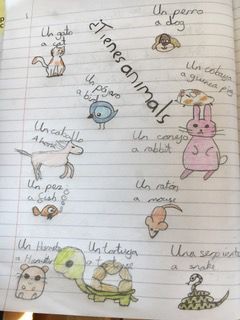 Un gato
a cat
Un perro
a dog
¿Tienes animals
Un cobaya
a guinea pig
Un pájaro
a bird
Un caballo
A horse
Un conejo
a rabbit
Un pez
a fish
Un ratón
a mouse
Un Hamster
a Hamster
Un tortuga
a
Una serpiente
a snake